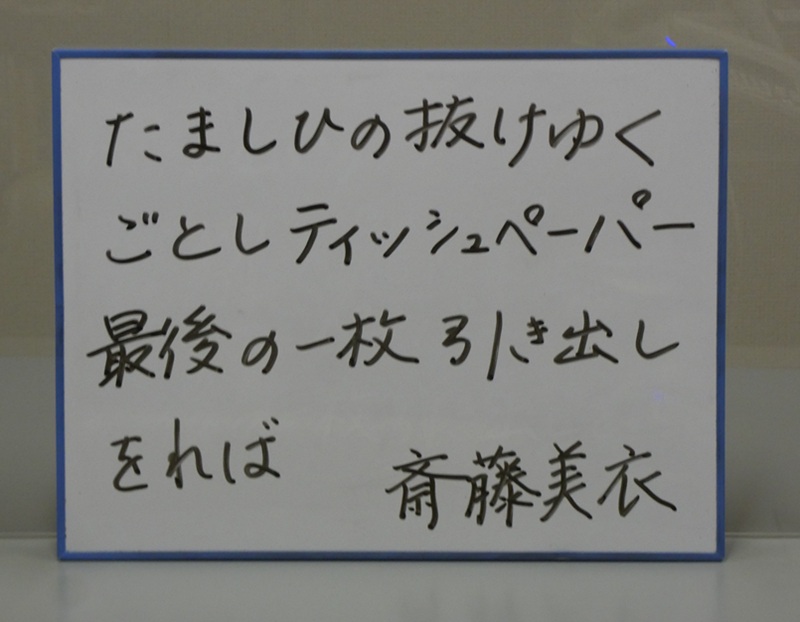 たましひの抜けゆく
ごとしティッシュペーパー
最後の一枚引き出し
をれば
斎藤美衣